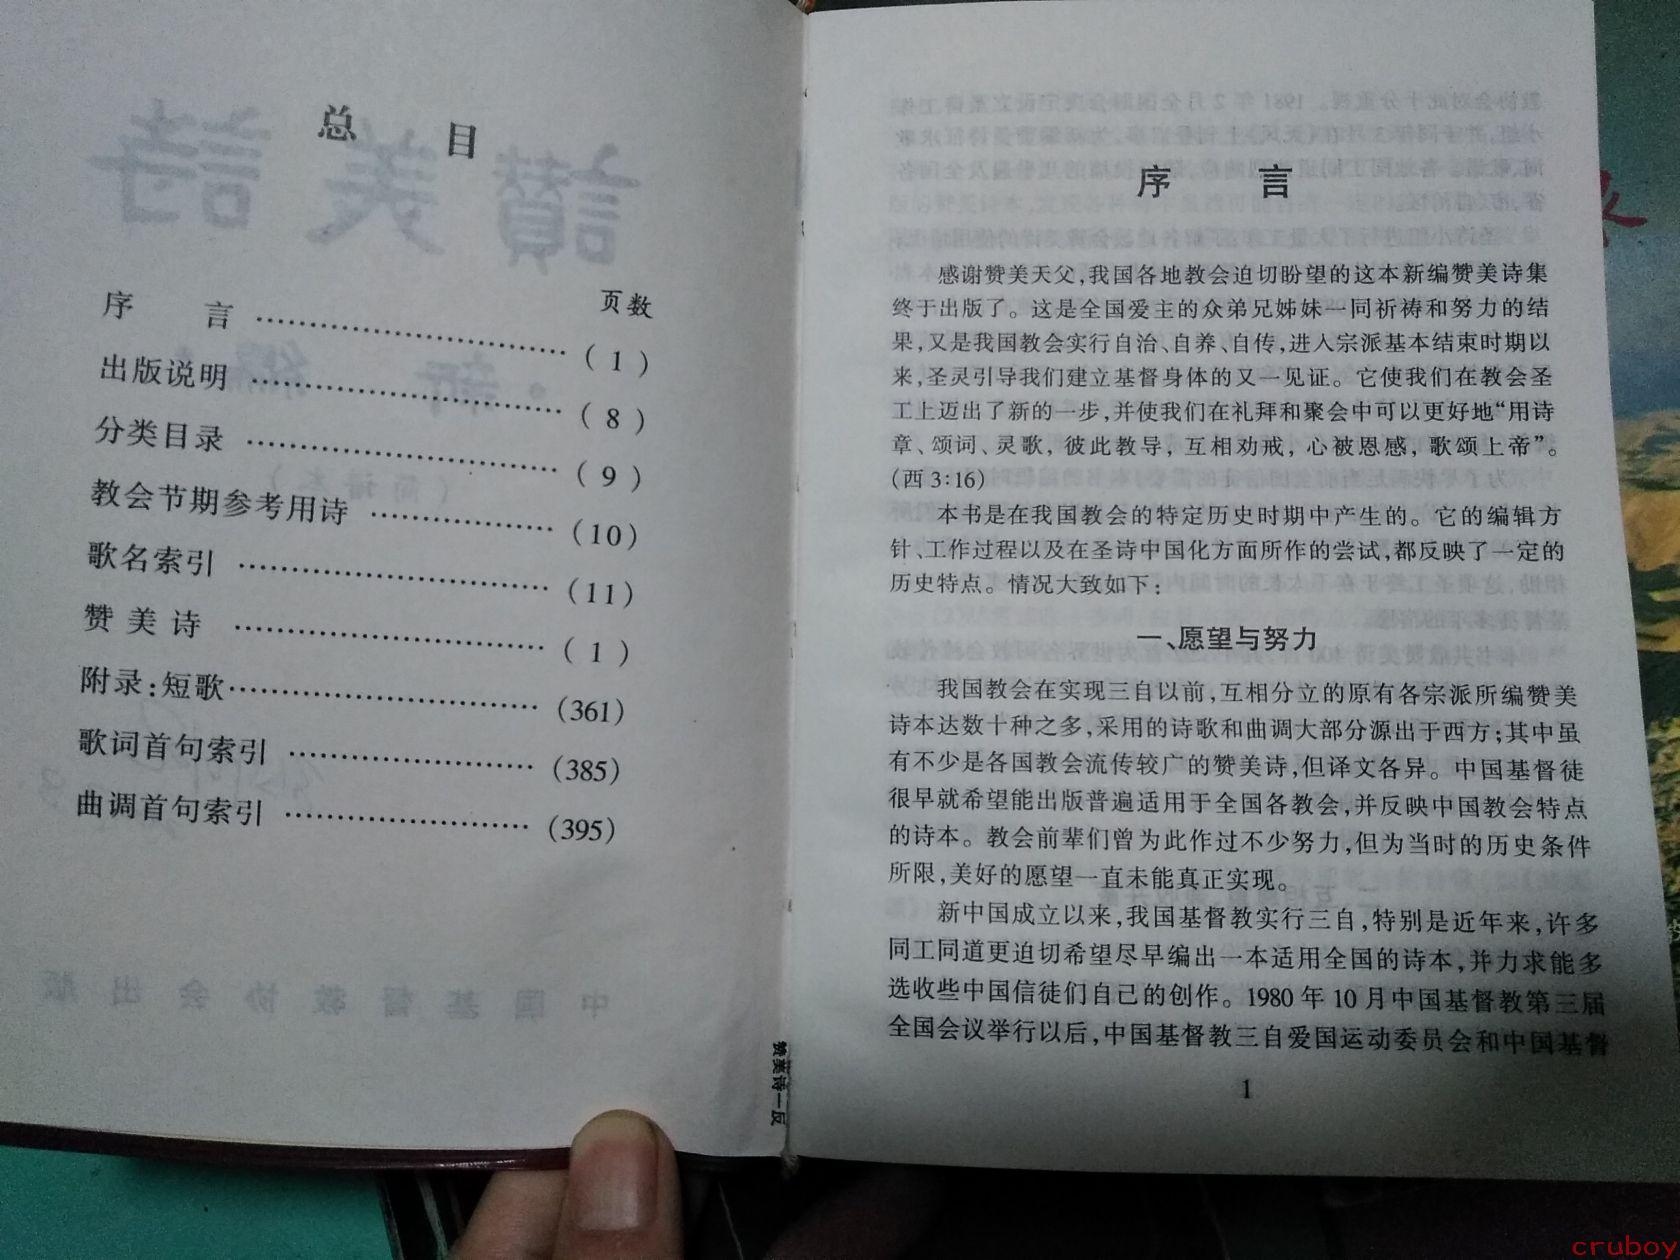 总 目
页数
序 言 …… (1)
出版说明 …… (8)
分类目录 …… (9)
教会节期参考用诗 …… (10)
歌名索引 …… (11)
赞美诗 …… (1)
附录:短歌 …… (361)
歌词首句索引 …… (385)
曲调首句索引 …… (395)
赞美诗一反
序 言
感谢赞美天父,我国各地教会迫切盼望的这本新编赞美诗集
终于出版了。这是全国爱主的众弟兄姊妹一同祈祷和努力的结
果,又是我国教会实行自治、自养、自传,进入宗派基本结束时期以
来,圣灵引导我们建立基督身体的又一见证。它使我们在教会圣
工上迈出了新的一步,并使我们在礼拜和聚会中可以更好地“用诗
章、颂词、灵歌,彼此教导,互相劝戒,心被恩感,歌颂上帝”。
(西 3:16)
本书是在我国教会的特定历史时期中产生的。它的编辑方
针、工作过程以及在圣诗中国化方面所作的尝试,都反映了一定的
历史特点。情况大致如下:
一、愿望与努力
我国教会在实现三自以前,互相分立的原有各宗派所编赞美
诗本达数十种之多,采用的诗歌和曲调大部分源出于西方;其中虽
有不少是各国教会流传较广的赞美诗,但译文各异。中国基督徒
很早就希望能出版普遍适用于全国各教会,并反映中国教会特点
的诗本。教会前辈们曾为此作过不少努力,但为当时的历史条件
所限,美好的愿望一直未能真正实现。
新中国成立以来,我国基督教实行三自,特别是近年来,许多
同工同道更迫切希望尽早编出一本适用全国的诗本,并力求能多
选收些中国信徒们自己的创作。1980 年 10 月中国基督教第三届
全国会议举行以后,中国基督教三自爱国运动委员会和中国基督
1
cruboy